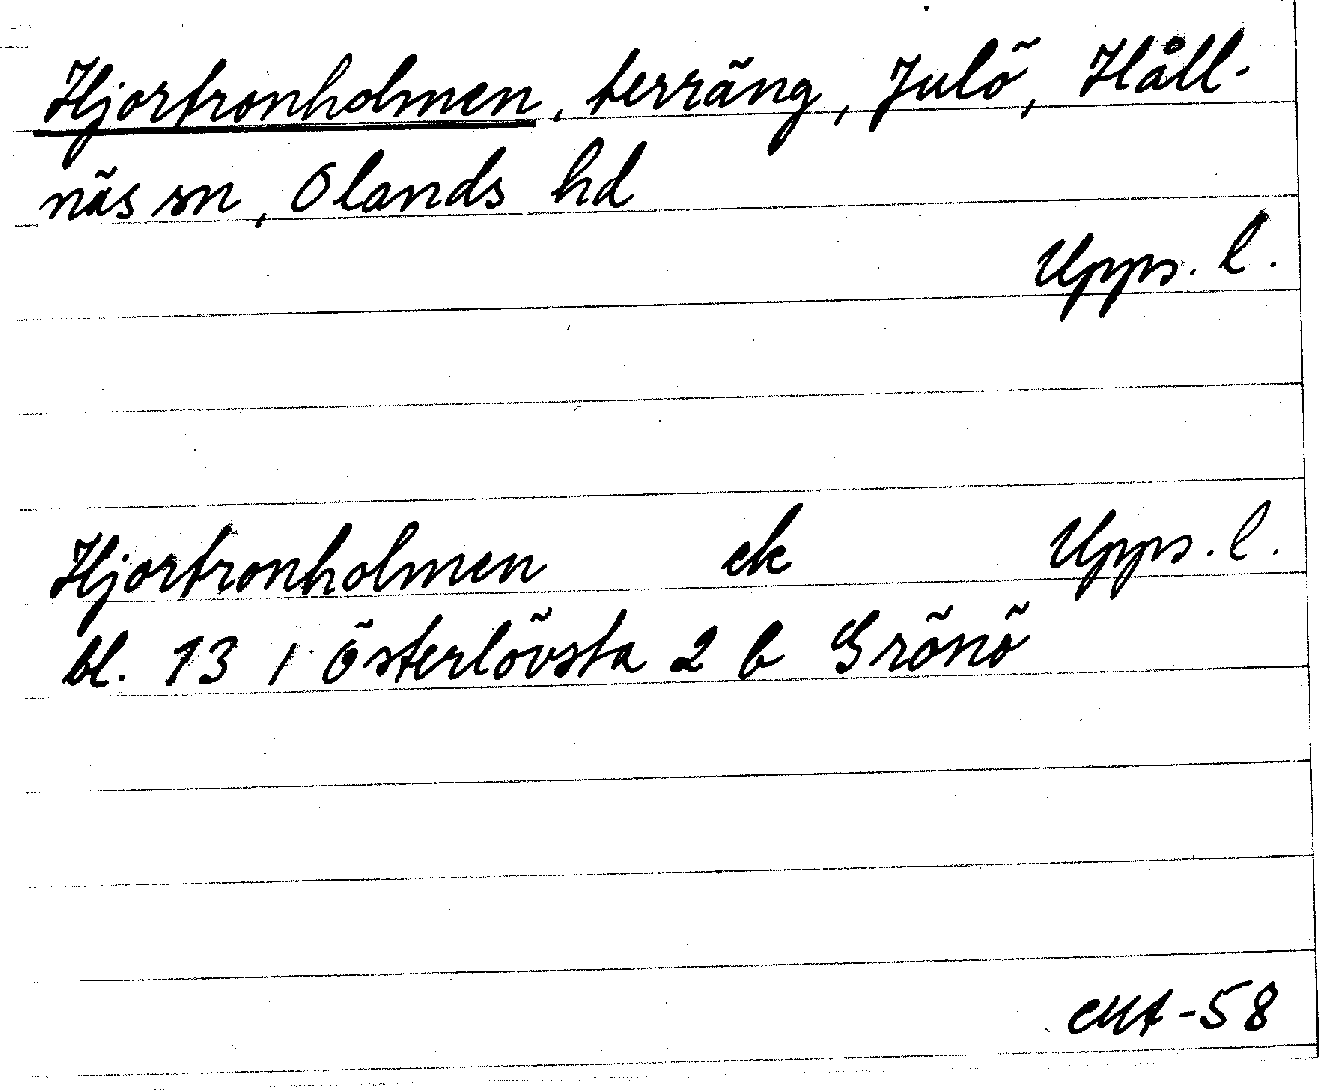 Hjortronholmen, terräng, Julö, Håll-
näs sn, Olands hd
Upps. l.
Hjortronholmen ek Upps. l.
bl. 13 i Österlövsta 2 b Grönö
-58